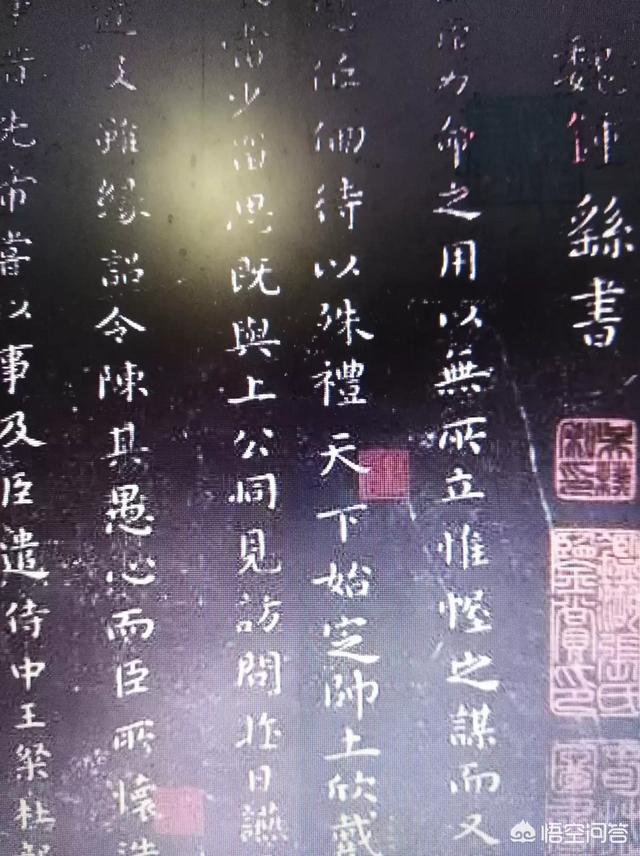 魏鍾繇書
臣力命之用以無所立惟幄之謀而又
恩低佪待以殊禮天下始定帥土欣戴
當少留思既與上公同見訪問昨日讌
又雖緣詔令陳其愚心而臣所懷造
事昔先帝嘗以事及臣遣侍中王粲杜
悟空问答